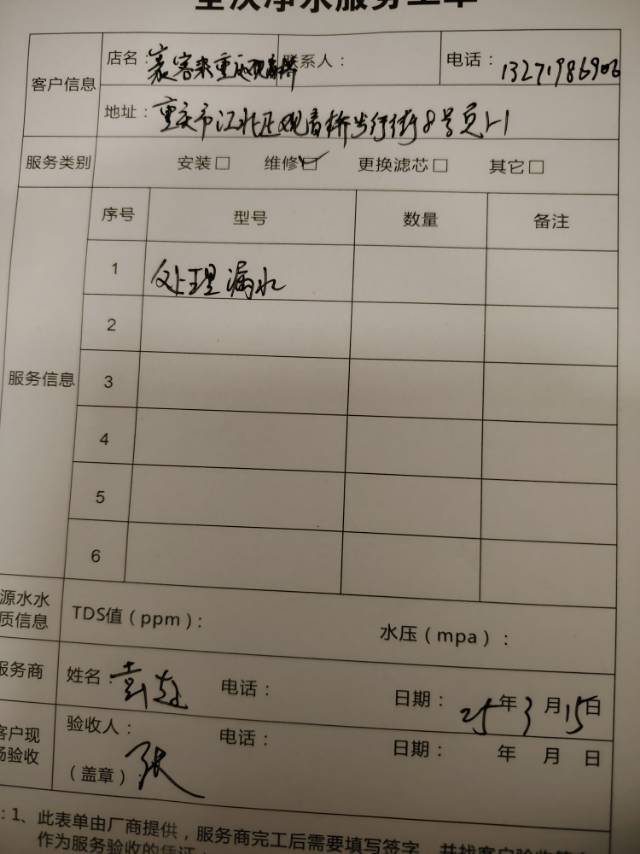 净水服务工单
客户信息 店名: 袁客来重庆观音桥 联系人: 电话: 13271986906
地址: 重庆市江北区观音桥步行街8号页1-1
服务类别 安装□ 维修☑ 更换滤芯□ 其它□
服务信息 序号 型号 数量 备注
1 处理漏水
2
3
4
5
6
源水水质信息 TDS值(ppm): 水压(mpa):
服务商 姓名: 电话: 日期: 25年3月15日
客户现场验收 验收人: 张 电话: 日期: 年 月 日
(盖章)
:1、此表单由厂商提供,服务商完工后需要填写签字,并找客户验收签
作为服务验收的凭证